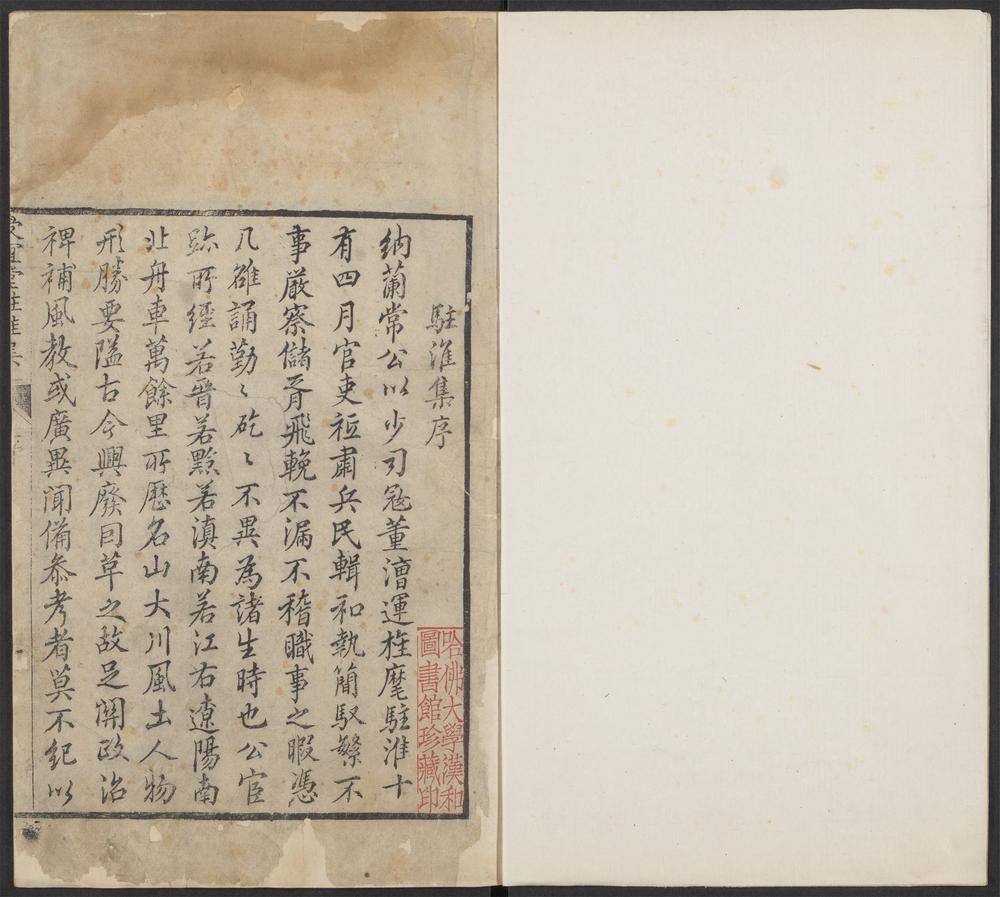 駐淮集序
納蘭常公以少司冦董漕運旌麾駐淮十
有四月官吏祗肅兵民輯和執簡馭繁不
事厳察儲胥飛輓不漏不稽職事之暇憑
几雒誦勤〻矻〻不異為諸生時也公宦
跡所經若晉若黔若滇南若江右遼陽南
北舟車萬餘里所歷名山大川風土人物
形勝要隘古今興廢囙革之故足關政治
裨補風教或廣異聞備叅考者莫不紀以
受宜堂駐淮集
序
哈佛大學漢和
圖書館珍藏印